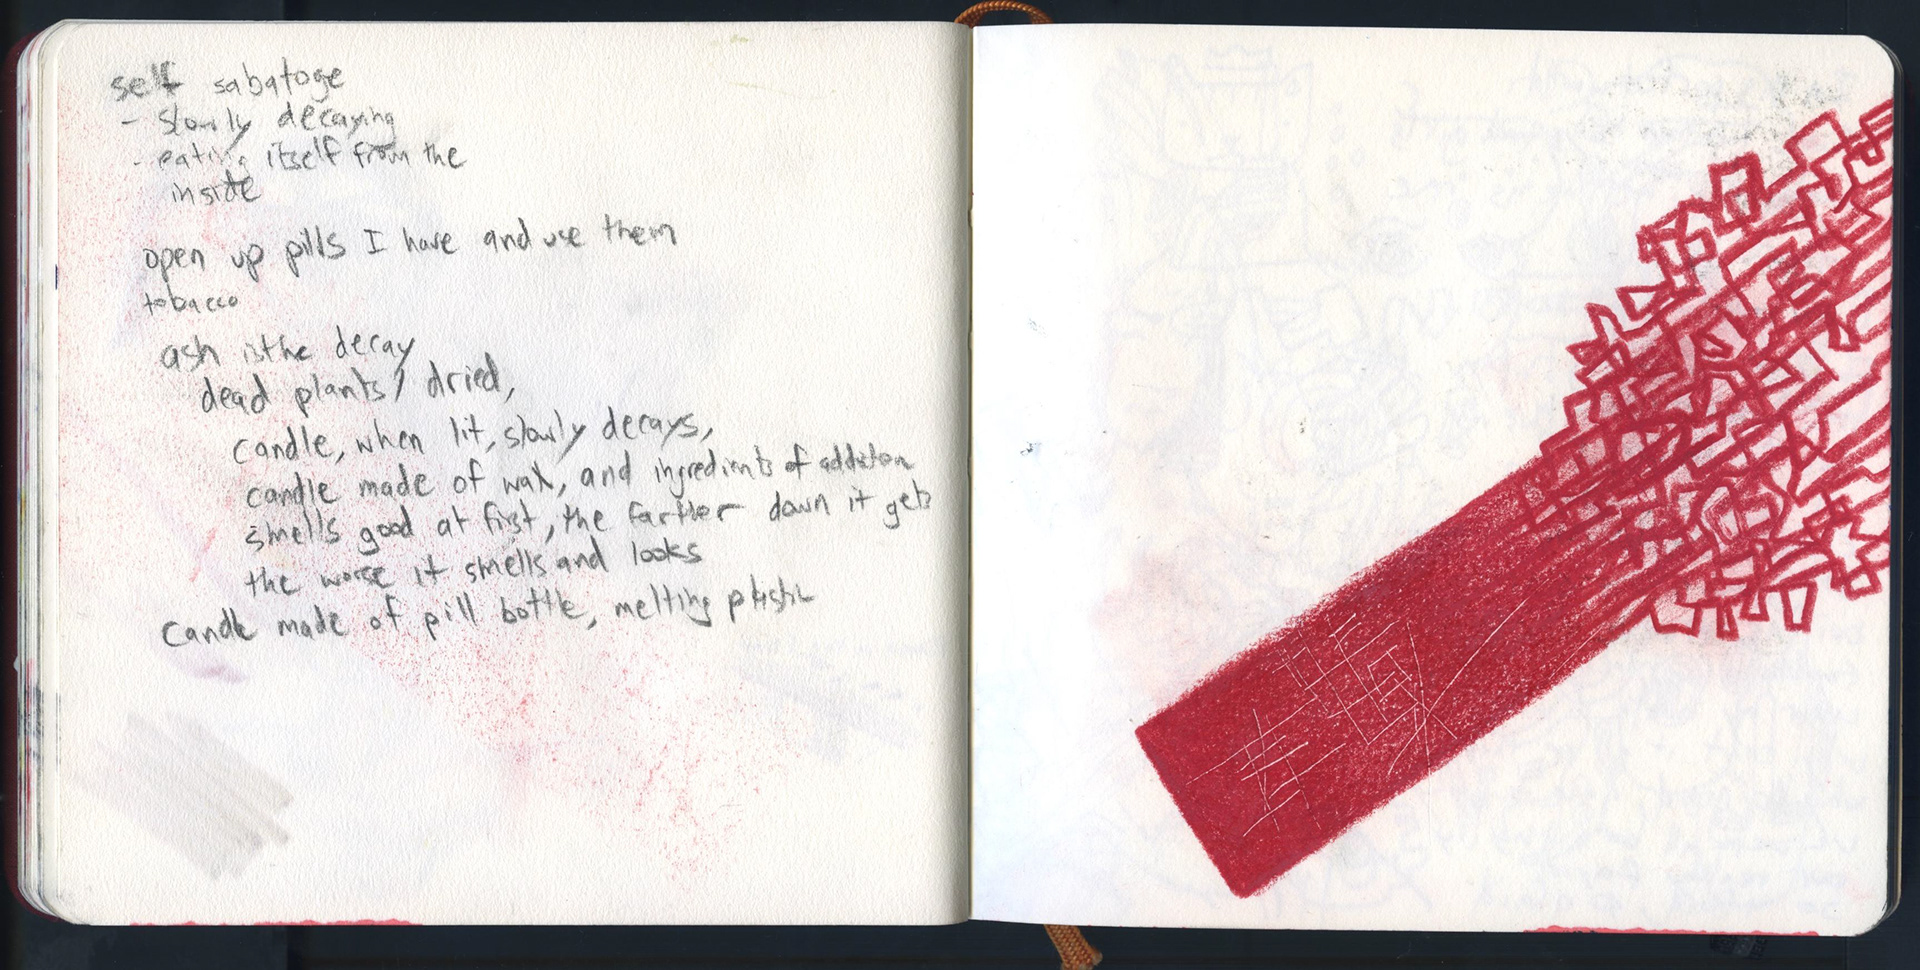 self sabatoge
- slowly decaying
- eating itself from the
inside
open up pills I have and use them
tobacco
ash is the decay
dead plants, dried,
candle, when lit, slowly decays,
candle made of wax, and ingredients of addiction
smells good at first, the farther down it gets
the worse it smells and looks
candle made of pill bottle, melting plastic